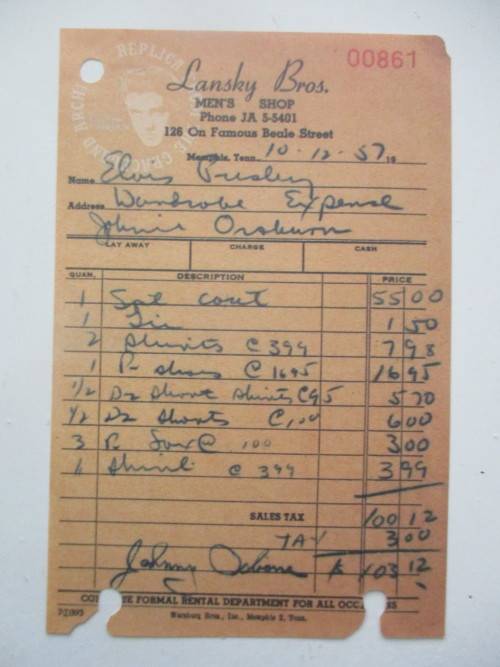 00861
REPLICA
Lansky Bros.
MEN'S SHOP
Phone JA 5-5401
126 On Famous Beale Street
Memphis, Tenn. 10-12-57 19
Name Elvis Presley
Address Wardrobe Expense
LAY AWAY CHARGE CASH
QUAN. DESCRIPTION PRICE
1 Spt cout 55 00
1 Tie 1 50
2 Shirts @ 399 7 98
1 P. Shoes @ 1695 16 95
1/2 Dz Short Shirts @ 95 5 70
1/2 Dz Shorts @ 1.00 6 00
3 P. Sox @ 1.00 3 00
1 Shirt @ 399 3 99
SALES TAX 100 12
TAX 3 00
Johnny 103 12
COMPLETE FORMAL RENTAL DEPARTMENT FOR ALL OCC
Warsburg Bros., Inc., Memphis 2, Tenn.